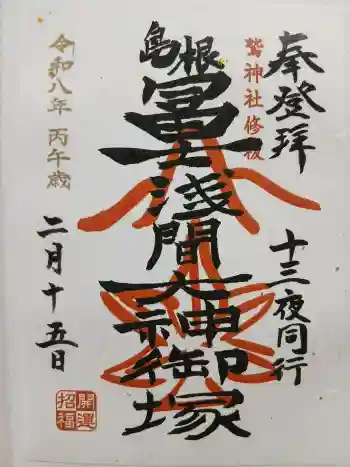 奉登拝
十三夜同行
鷲神社修祓
島根
冨士浅間大神御塚
令和八年 丙午歳
二月十五日
開運招福